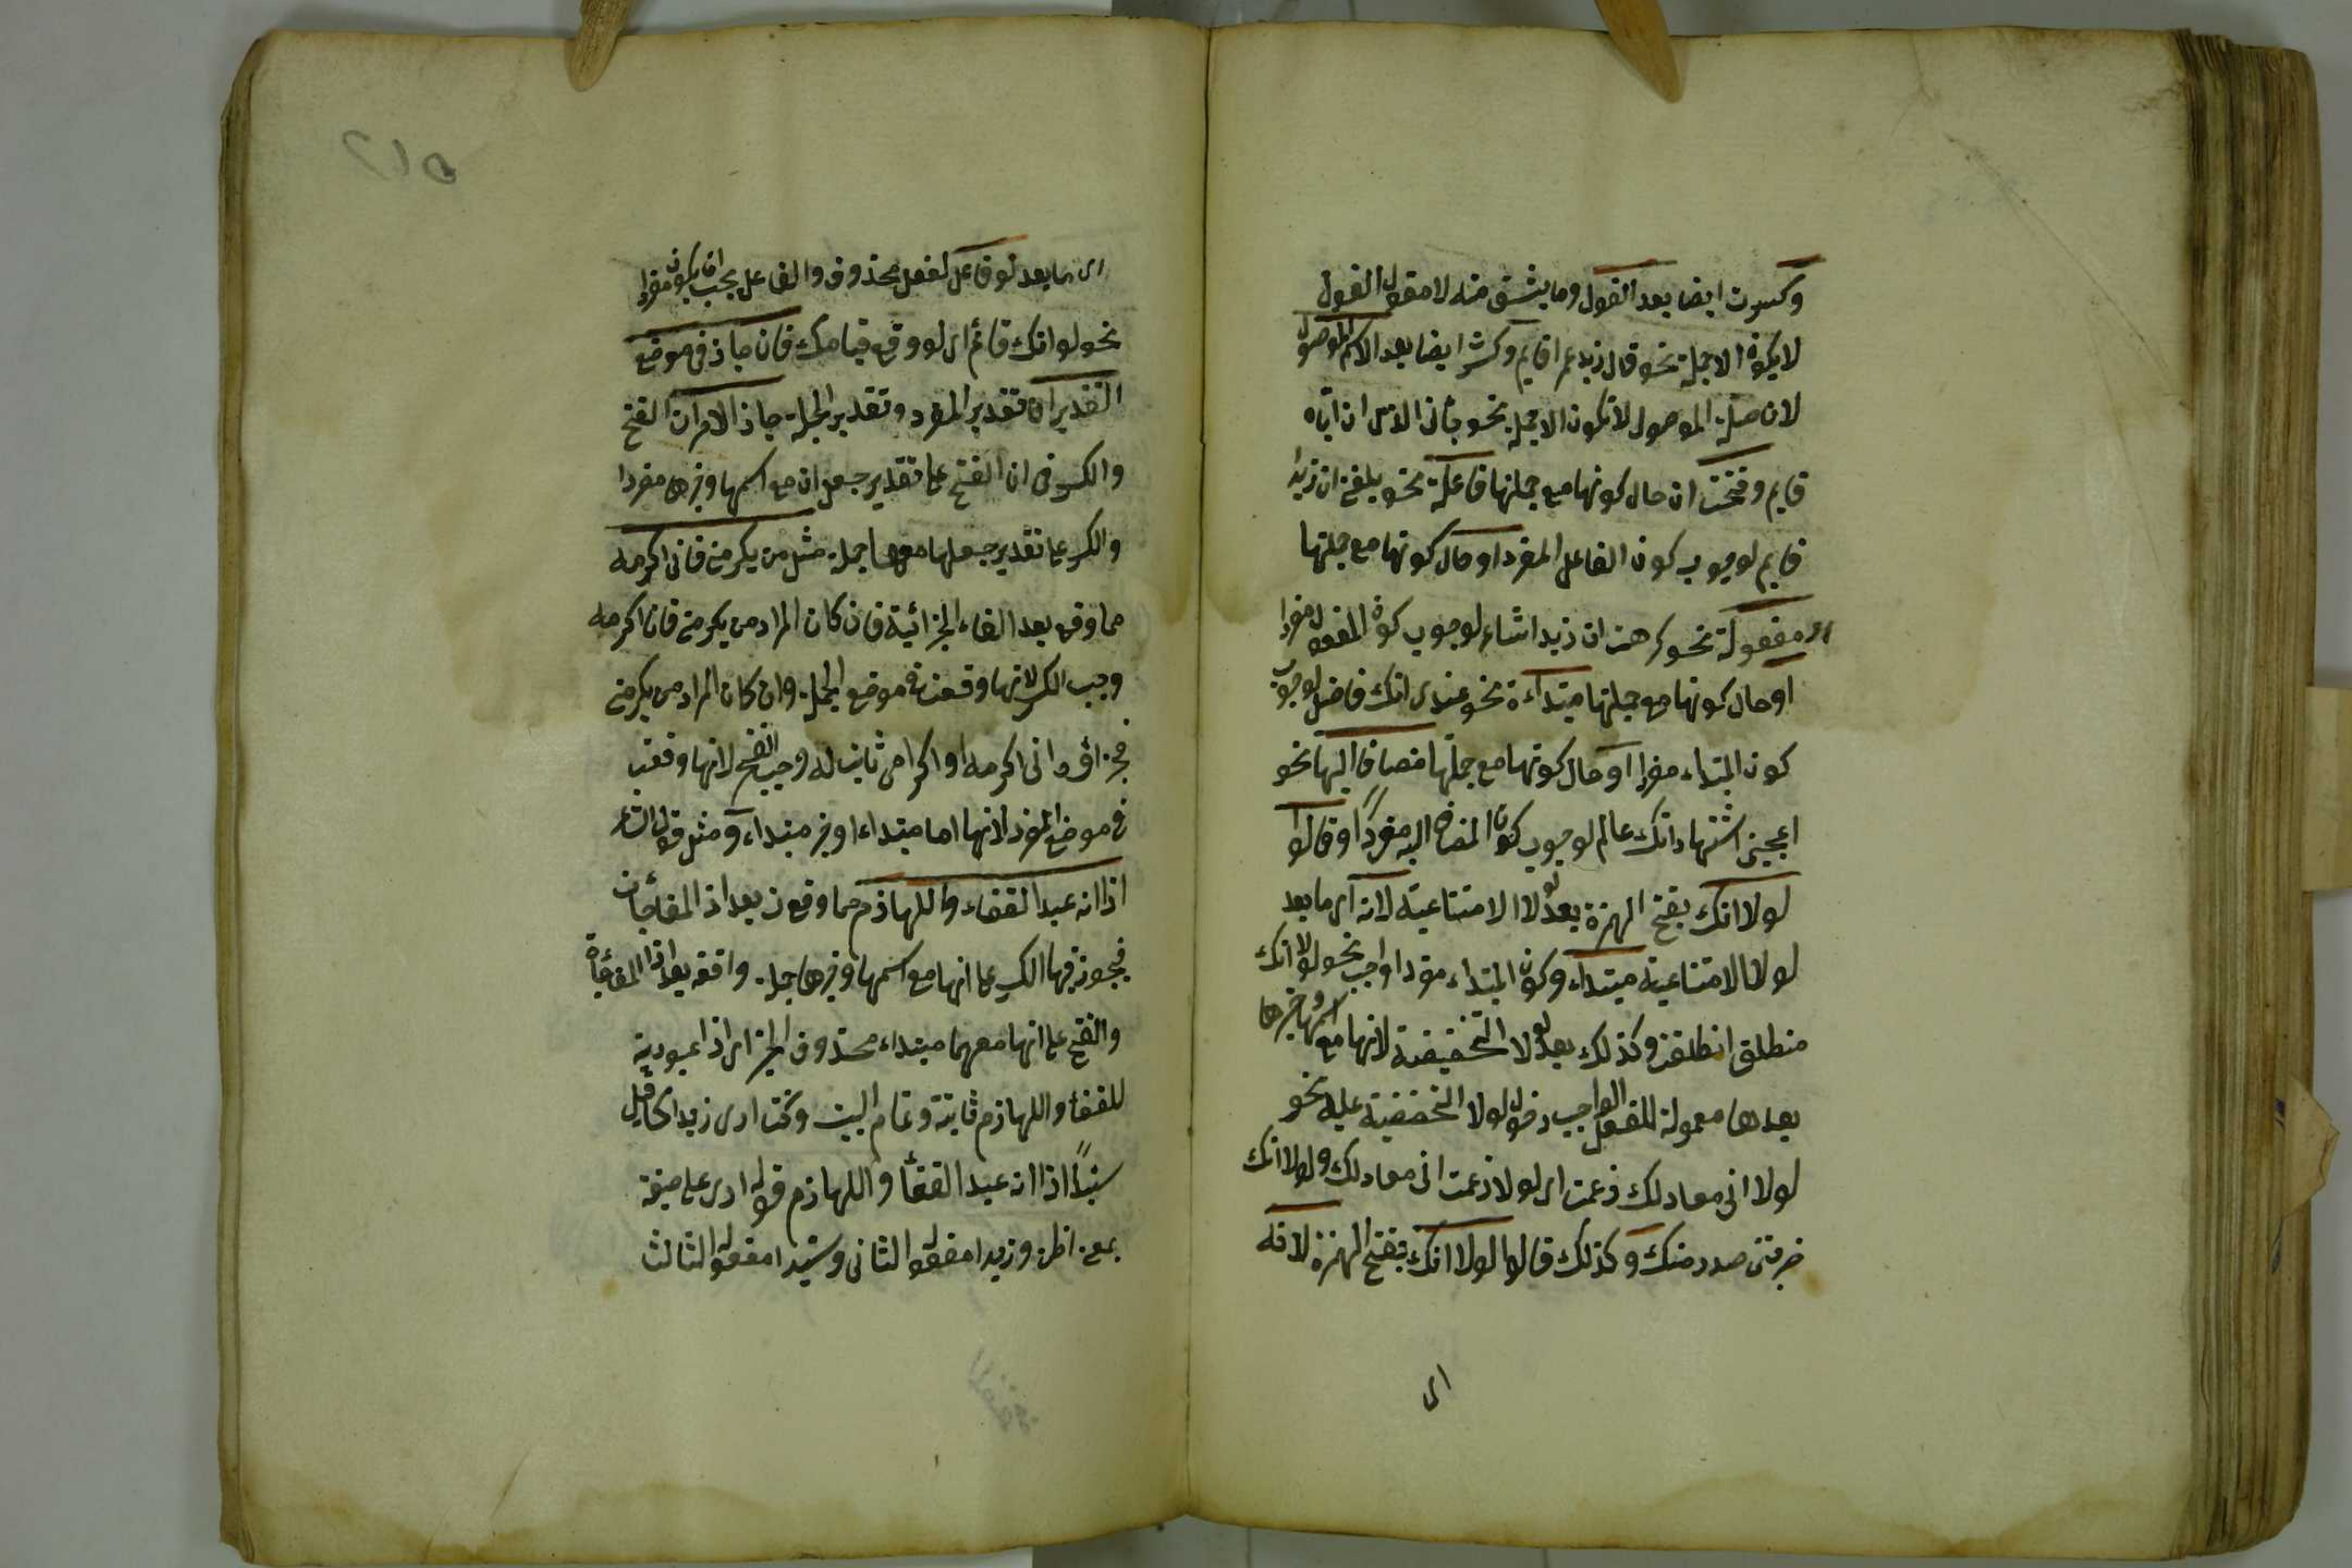 وكسرت ايضا بعد القول وما يشتق منه لا مقول القول
لا يكون الا جملة نحو قال زيد عمرا قايم وكسرت ايضا بعد الاسم الموصول
لان صلة الموصول لا تكون الا جملة نحو جائنى الذى ان اباه
قايم وفتحت ان حال كونها مع جملتها فاعلة نحو بلغنى ان زيدا
قايم لوجوب كون الفاعل المفرد او حال كونها مع جملتها
مفعولة نحو كرهت ان زيدا شاء لوجوب كون المفعول مفردا
او حال كونها مع جملتها مبتداءة نحو عندى انك فاضل لوجوب
كون المبتداء مفردا او حال كونها مع جملتها مضافا اليها نحو
اعجبنى اشتهار انك عالم لوجوب كون المضاف اليه مفردًا وقالوا
لولا انك بفتح الهمزة بعد لولا الامتناعية لانه اى ما بعد
لولا الامتناعية مبتداء وكون المبتداء مفردا واجب نحو لولا انك
منطلق انطلقت وكذلك بعد لولا التحضيضية لانها مع اسمها وخبرها
بعدها معمولة للفعل الواجب دخول لولا التحضيضية عليه نحو
لولا انى معاد لك زعمت اى لولا زعمت انى معاد لك ولولا انك
ضربتنى صدر منك وكذلك قالوا لولا انك بفتح الهمزة لانه
اى
٢١٥
اى ما بعد لو فاعل لفعل محذوف والفاعل يجب ان يكون مفردا
نحو لو انك قائم اى لو وقع قيامك فان جاز فى موضع
التقديران تقدير المفرد وتقدير الجملة جاز الامران الفتح
والكسر فى ان الفتح على تقدير جعل ان مع اسمها وخبرها مفردا
والكسر على تقدير جعلها معهما جملة مثل من يكرمنى فانى اكرمه
مما وقع بعد الفاء الجزائية فان كان المراد من يكرمنى فانا اكرمه
وجب الكسر لانها وقعت فى موضع الجملة وان كان المراد من يكرمنى
فجزاؤه انى اكرمه او اكرامى ثابت له وجب الفتح لانها وقعت
فى موضع المفرد لانها اما مبتداء او خبر مبتداء ومثل قول الشاعر
اذا انه عبد القفاء واللهازم مما وقع ان بعد اذا المفاجات
فيجوز فيها الكسر على انها مع اسمها وخبرها جملة واقعة بعد اذا المفاجأة
والفتح على انها معهما مبتداء محذوف الخبر اى اذا عبودية
للقفأ واللهازم ثابتة وتمام البيت وكنت ارى زيدا كما قيل
سيدًا اذا انه عبد القفأ واللهازم قوله ارى على صيغة
بمعنى اظن وزيدا مفعوله الثانى وسيدا مفعوله الثالث